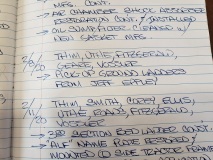 MFG. CONT.
AIR CHAMBER SHOCK ABSORBER
RESTORATION CONT. & INSTALLED
OIL SUMP FILTER CLEANED W/
NEW GASKET MFG.
2/8/20 THIM, UTHE, FITZGERALD,
VOSSLER
→ PICK UP GROUND LADDERS
FROM JEFF SIPLEY
2/1/20 THIM, SMITH, COREY, ELLIS,
UTHE, ROADS, FITZGERALD,
VOSSLER
→ 3RD SECTION BED LADDER CONT.
→ "ALF" NAME PLATE RESTORED &
MOUNTED @ SIDE TRACTOR FRAME